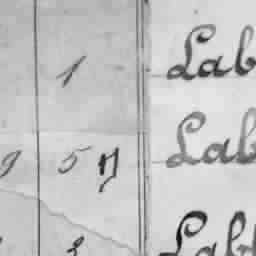 1 Lab
9 5 Lab
3 Lab